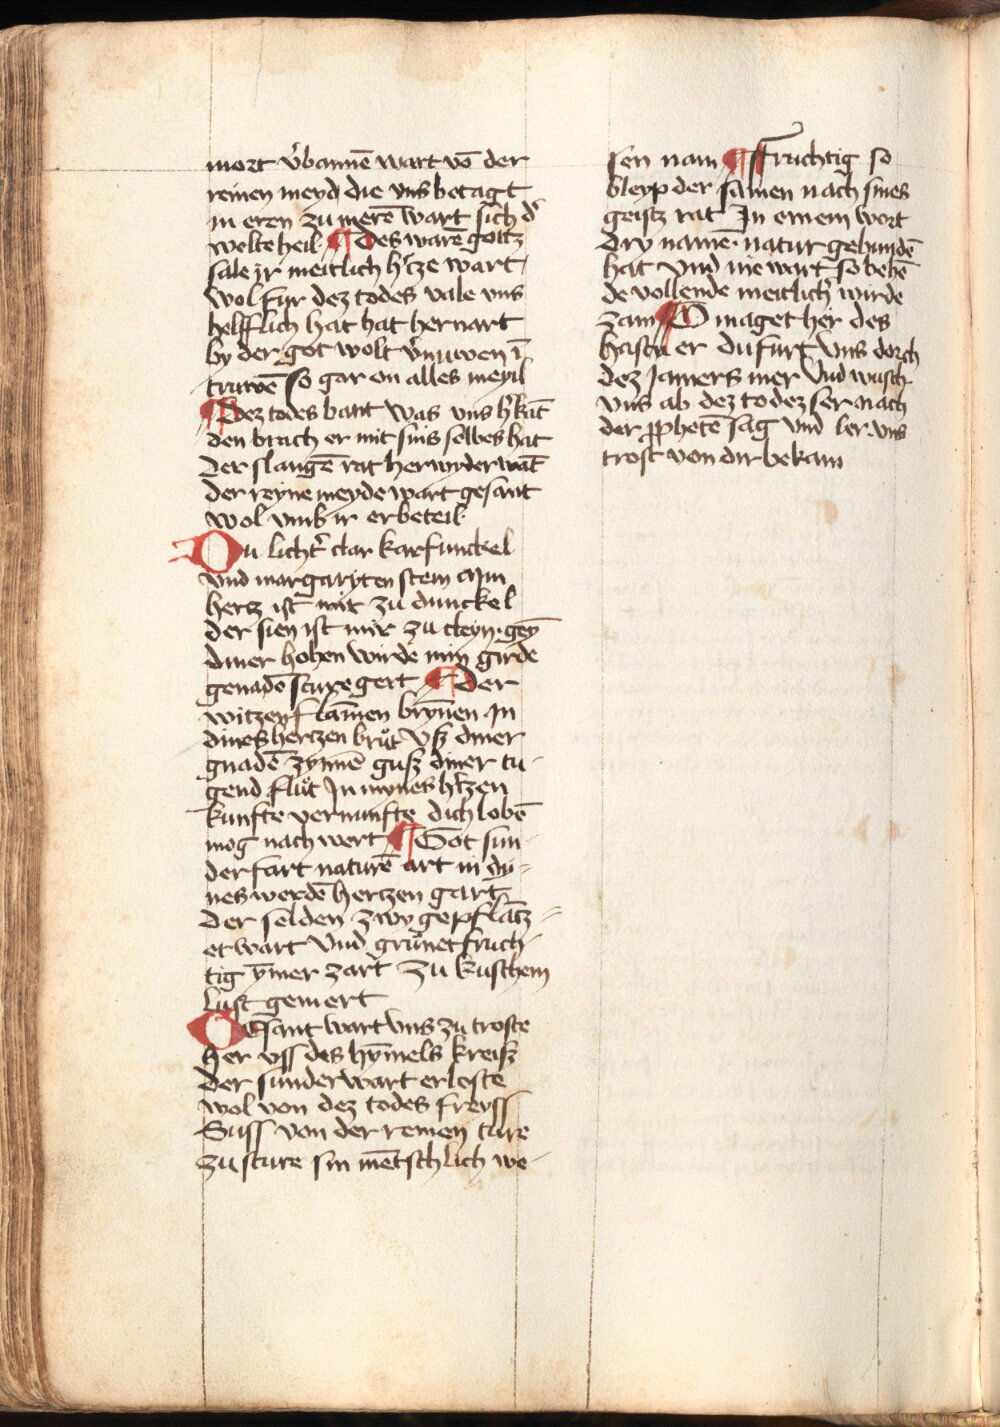 mort v̾bannē wart vō der
reinen meyd die vns betagt
in eren zu merē wart sich d̾
welte heil ¶ Des warē gottz
sale jr meitlich h̾tze wart
wol fur dez todes vale vns
helfflich hat hat hernart
by der got wolt v̾nuwen ī
truwē so gar on alles meyil
¶ Dez todes bant was vns h̾kāt
den brach er mit sins selbes hat
der slangē rat her wyder wāt
der reyne meyde wart gesant
wol vmb ir erbeteil
Du licht̾ clar karfunckel
vnd margaryten stein Min
hertz ist mir zu dunckel
der sien ist mir zu cleyn · gey̅
diner hohen wirde min girde
genadē sture gert ¶ Der
witzen flāmen bry̅nen In
dines hertzen brůt vsz diner
gnadē zynnē gusz diner tu-
gend flůt In mynes h̾tzen
kunfte vernunfte dich lobē
mog nach wert ¶ Got sun
der fart naturē art in dy-
nes werdē hertzen gart
der selden zwy gepflātz=
et wart vnd grůnet fruch
tig y̅mer zart zu kuschem
lust gemert
Gesant wart vns zu troste
her vss des hy̅mels kreisz
der sunder wart erloste
wol von dez todes freyss
Suss von der reinen ture
zu sture sin mētschlich we-
sen nam ¶ ffruchtig so
bleyp der samen nach sines
geistz rat In einem wort
dry namē · natur gebundē
hat vnd nie wart so behē
de vollende meitlich wirde
zam ¶ O maget her des
hastu er du furt vns dorch
dez Jamers mer vnd wasch
vns ab dez todez ser nach
der p̱phetē sag vnd ler vns
trost von dir bekam